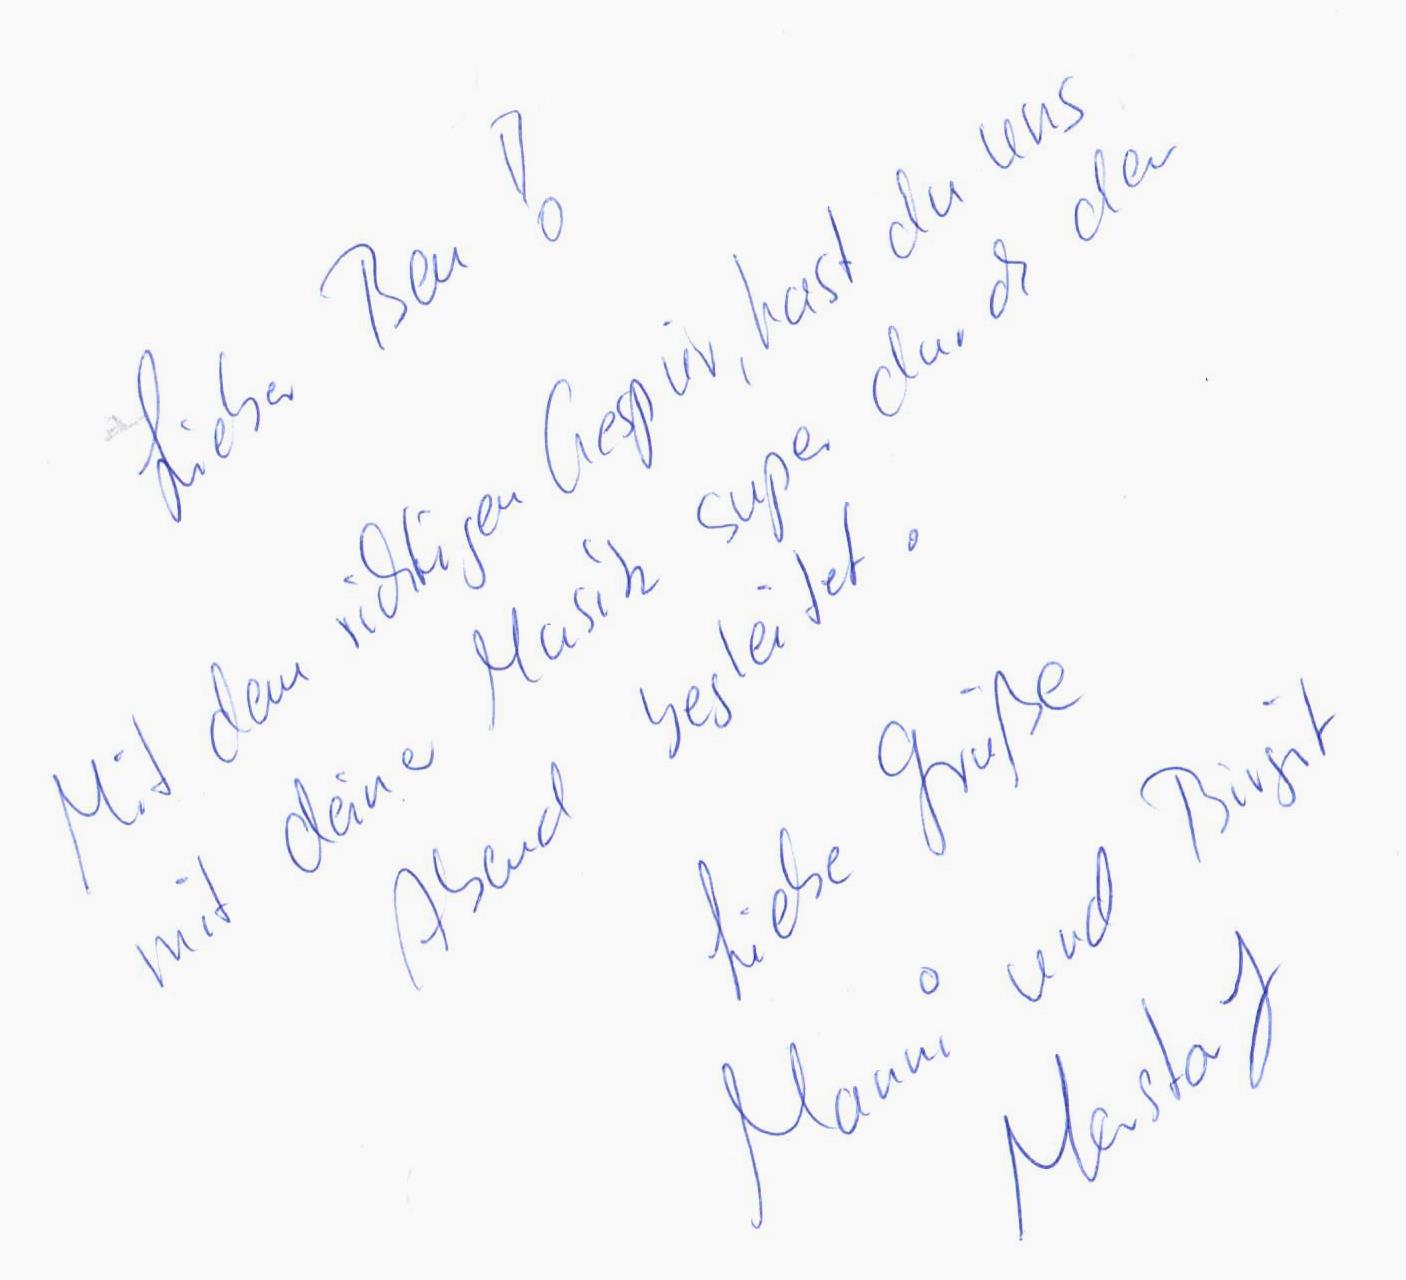 Lieber Ben!
Mit dem richtigen Gespür, hast du uns
mit deiner Musik super durch den
Abend begleitet.
Liebe Grüße
Manni und Birgit